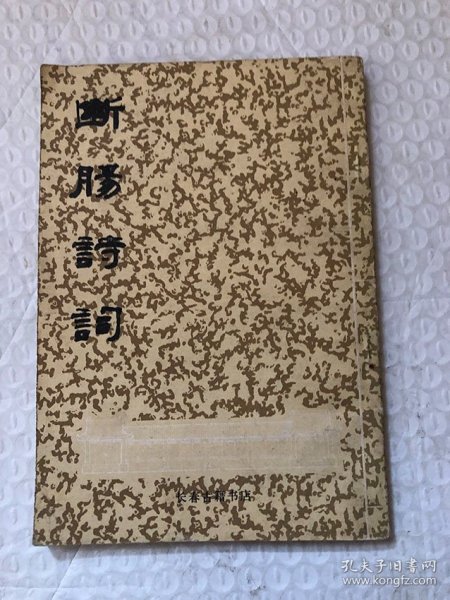 斷腸詩詞
长春古籍书店
孔夫子旧书网
www.kongfz.com